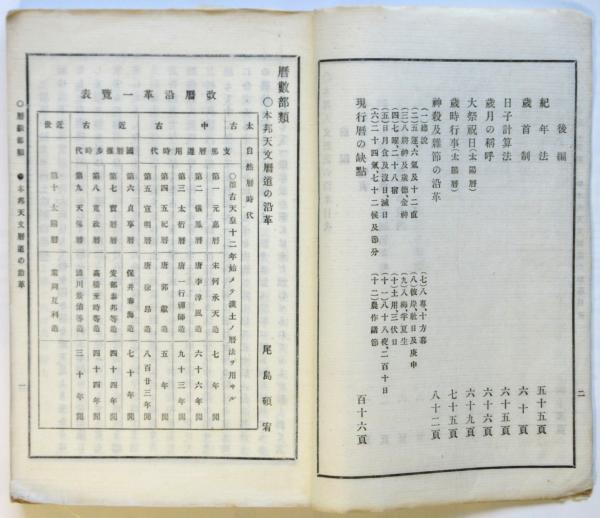 後編
紀年法 五十五頁
歲首制 六十頁
日子計算法 六十五頁
歲月の稱呼 六十六頁
大祭祝日(太陽曆) 六十九頁
歲時行事(太陰曆) 七十五頁
神殺及雜節の沿革 八十二頁
(一)總說 (七)八專、十方暮
(二)五運六氣及十二直 (八)彼岸、社日及庚申
(三)八將神及歲德金神 (九)八梅、半夏生
(四)七曜、二十八宿 (十)土用、三伏日
(五)日月食及沒日、滅日 (十一)八十八夜、二百十日
(六)二十四氣、七十二候及節分 (十二)農作諸節
現行曆の缺點 百十六頁
二
曆數部類
○本邦天文曆道の沿革
尾島碩宥
改曆沿革一覽表
太古 自然曆時代
○推古天皇十二年始メテ漢土ノ曆法ヲ用ヰル
第一 元嘉曆 宋何承天造 七年間
第二 儀鳳曆 唐李淳風造 六十六年間
第三 太衍曆 唐一行禪師造 九十三年間
第四 五紀曆 唐郭獻造 五年間
第五 宣明曆 唐徐昂造 八百廿三年間
第六 貞享曆 保井春海造 七十年間
第七 寶曆曆 安部泰邦等造 四十四年間
第八 寬政曆 高橋至時等造 四十四年間
第九 天保曆 澁川景佑等造 三十年間
第十 太陽曆
○曆數部類 ●本邦天文曆道の沿革
一